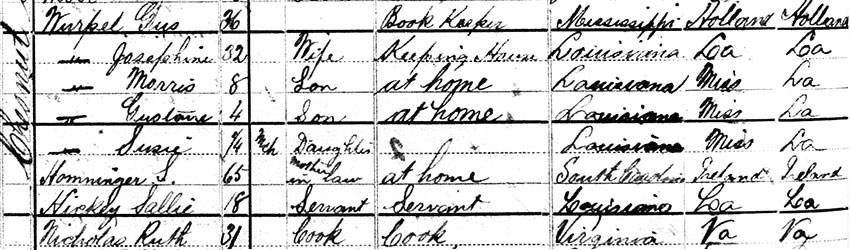 Wurpel Gus 36 Book Keeper Mississippi Holland Holland
" Josephine 32 Wife Keeping House Louisiana La La
" Morris 8 Son at home Louisiana Miss La
" Gustave 4 Son at home Louisiana Miss La
" Susie Mch Daughter Louisiana Miss La
Homninger S. 65 Mother in law at home South Carolina Ireland Ireland
Hickey Sallie 18 Servant Servant Louisiana La La
Nicholas Ruth 31 Cook Cook Virginia Va Va
Chesnut